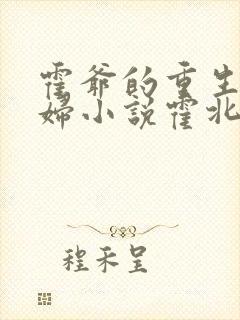 霍爷的重生
婦小説霍北
程禾呈